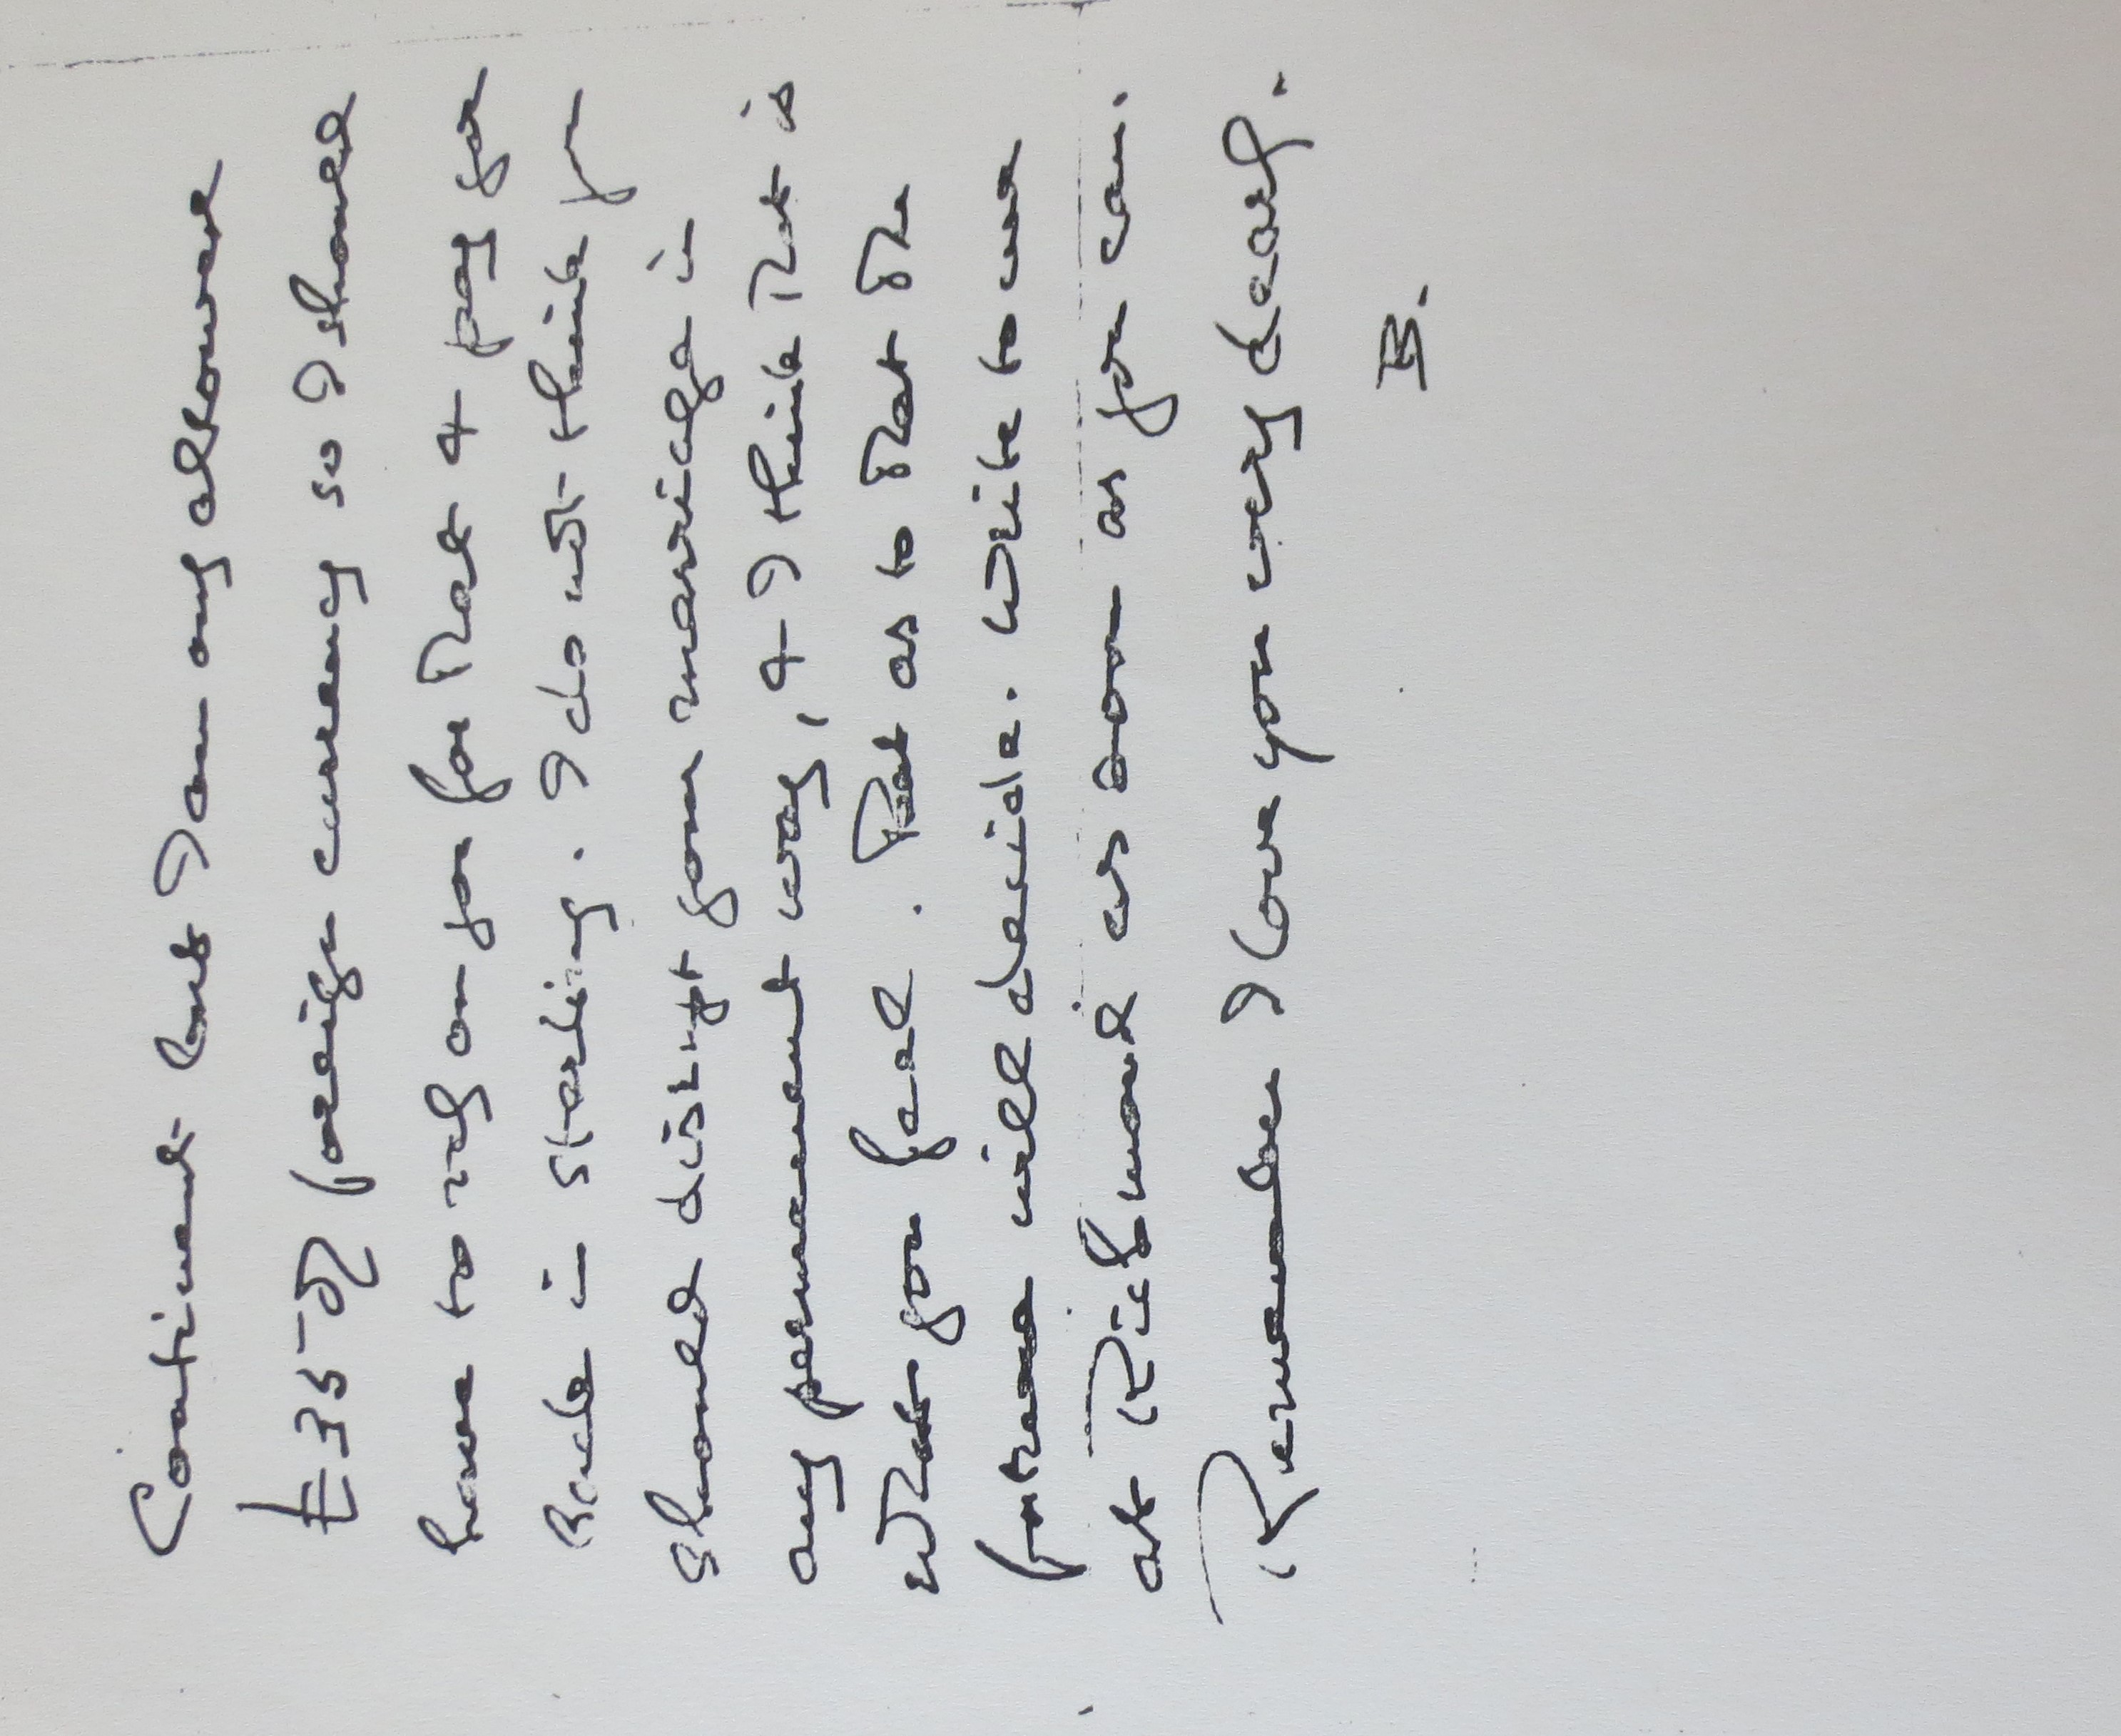 Continent but I am only allowed
£35 of foreign currency so I should
have to rely on you for that & pay you
back in sterling. I do not think you
should disrupt your marriage in
any permanent way, & I think that is
what you feel. But as to that the
future will decide. Write to me
at Richmond as soon as you can.
Remember I love you very dearly.
B.